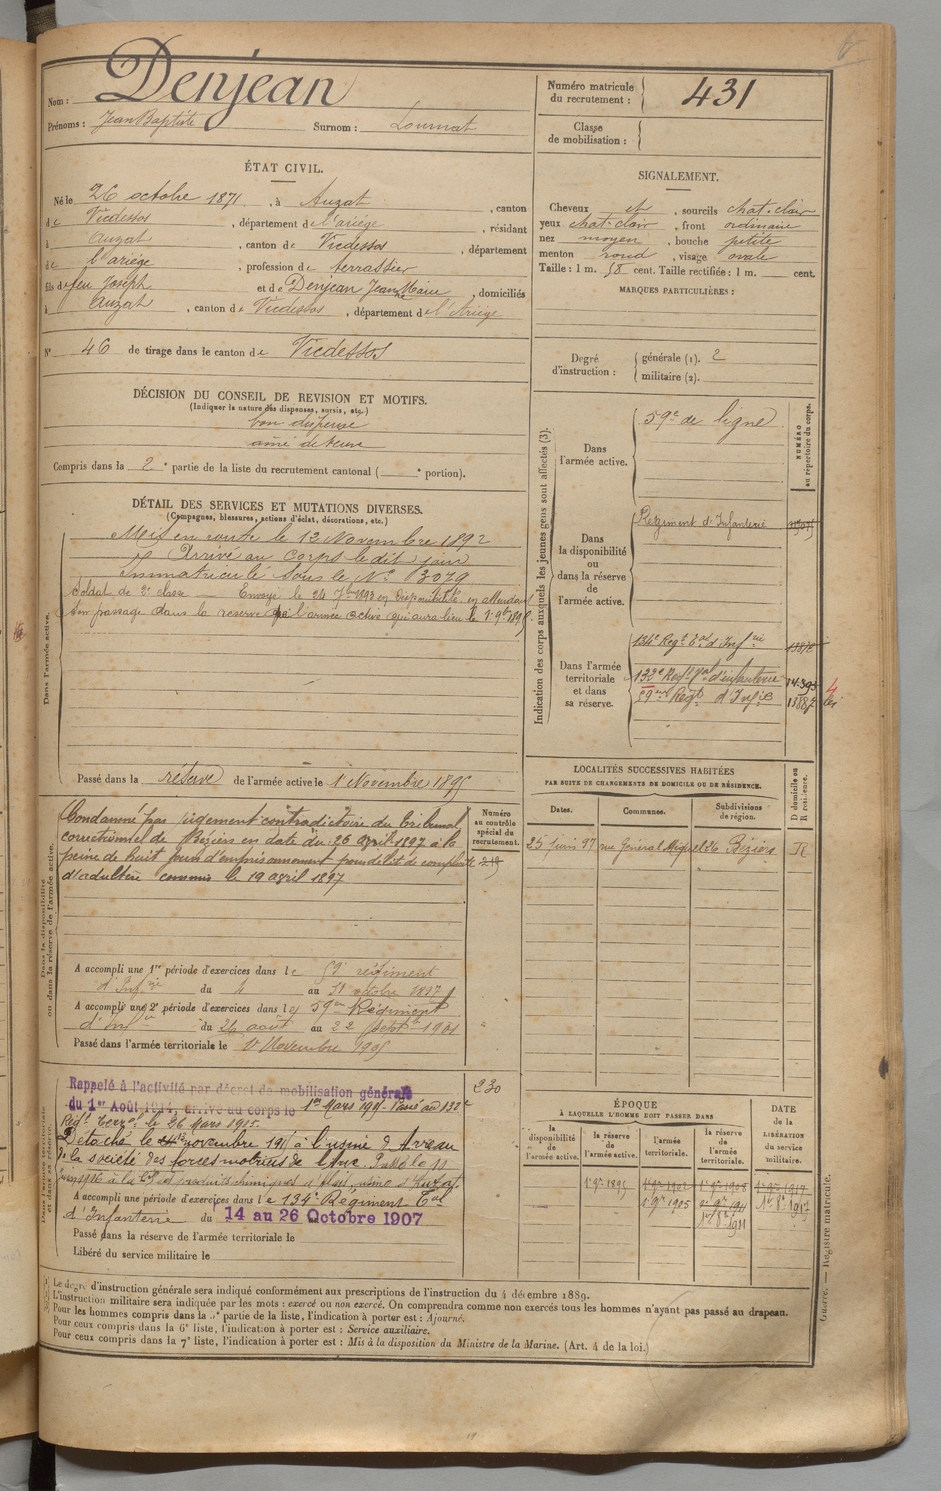 Nom : Denjean
Prénoms : Jean Baptiste Surnom : Loumat
ÉTAT CIVIL.
Né le 26 octobre 1871, à Auzat, canton
de Vicdessos, département de l'ariège, résidant
à Auzat, canton de Vicdessos, département
de l'ariège, profession de terrassier
fils de feu Joseph et de Denjean Jeanne Marie, domiciliés
à Auzat, canton de Vicdessos, département de l'Ariège
N° 46 de tirage dans le canton de Vicdessos
DÉCISION DU CONSEIL DE REVISION ET MOTIFS.
(Indiquer la nature des dispenses, sursis, etc.)
bon dispense
ainé de veuve
Compris dans la 2e partie de la liste du recrutement cantonal ( e portion).
DÉTAIL DES SERVICES ET MUTATIONS DIVERSES.
(Campagnes, blessures, actions d'éclat, décorations, etc.)
Dans l'armée active.
Mis en route le 12 Novembre 1892
Arrivé au Corps le dit jour
Immatriculé sous le N° 3079
Soldat de 2e classe — Envoyé le 24 7bre 1893 en disponibilité en attendant
son passage dans la réserve de l'armée active qui aura lieu le 1er 9bre 1895.
Passé dans la réserve de l'armée active le 1er Novembre 1895
Dans la disponibilité
ou dans la réserve de l'armée active.
Condamné par jugement contradictoire du tribunal
correctionnel de Béziers en date du 26 avril 1897 à la
peine de huit jours d'emprisonnement pour délit de complicité
d'adultère commis le 19 avril 1897
Numéro
au contrôle
spécial du
recrutement.
A accompli une 1re période d'exercices dans le 59e régiment
d'Infie du 4 au 31 octobre 1897
A accompli une 2e période d'exercices dans le 59me Régiment
d'Infie du 26 août au 22 septbre 1901
Passé dans l'armée territoriale le 1er Novembre 1905
Dans l'armée territoriale
et dans sa réserve.
230
Rappelé à l'activité par décret de mobilisation générale
du 1er Août 1914, arrivé au corps le 1er Mars 1915. Passé au 132e
Régt Terral le 26 Mars 1915.
Détaché le 12 novembre 191 à l'usine d'
de la société des forces motrices de
A accompli une période d'exercices dans le 134e Régiment Tal
d'Infanterie du 14 au 26 Octobre 1907
Passé dans la réserve de l'armée territoriale le
Libéré du service militaire le
Numéro matricule
du recrutement : 431
Classe
de mobilisation :
SIGNALEMENT.
Cheveux et, sourcils chat. clair
yeux chat. clair, front ordinaire
nez moyen, bouche petite
menton rond, visage ovale
Taille : 1 m. 58 cent. Taille rectifiée : 1 m. cent.
MARQUES PARTICULIÈRES :
Degré
d'instruction :
générale (1). 2
militaire (2).
Indication des corps auxquels les jeunes gens sont affectés (3).
NUMÉRO
au répertoire du corps.
Dans
l'armée active.
59e de ligne
Dans
la disponibilité
ou
dans la réserve
de
l'armée active.
Régiment d'Infanterie
Dans l'armée
territoriale
et dans
sa réserve.
134e Regt Tal d'Infrie
132e Regt Tal d'infanterie 14393
59me Regt d'Infie 13887
LOCALITÉS SUCCESSIVES HABITÉES
PAR SUITE DE CHANGEMENTS DE DOMICILE OU DE RÉSIDENCE.
Dates. Communes. Subdivisions
de région.
D domicile ou
R résidence.
25 juin 97 rue Général Miquel 26 Béziers R
ÉPOQUE
À LAQUELLE L'HOMME DOIT PASSER DANS
DATE
de la
LIBÉRATION
du service
militaire.
la
disponibilité
de
l'armée active.
la réserve
de
l'armée active.
l'armée
territoriale.
la réserve
de
l'armée
territoriale.
1er 9bre 1895 1er 9bre 1908 1er 9bre 1917
1er 9bre 1905 1er 8bre 1917
1er 8bre 1911
Le degré d'instruction générale sera indiqué conformément aux prescriptions de l'instruction du 4 décembre 1889.
L'instruction militaire sera indiquée par les mots : exercé ou non exercé. On comprendra comme non exercés tous les hommes n'ayant pas passé au drapeau.
Pour les hommes compris dans la 5e partie de la liste, l'indication à porter est : Ajourné.
Pour ceux compris dans la 6e liste, l'indication à porter est : Service auxiliaire.
Pour ceux compris dans la 7e liste, l'indication à porter est : Mis à la disposition du Ministre de la Marine. (Art. 4 de la loi.)
Guerre. — Registre matricule.